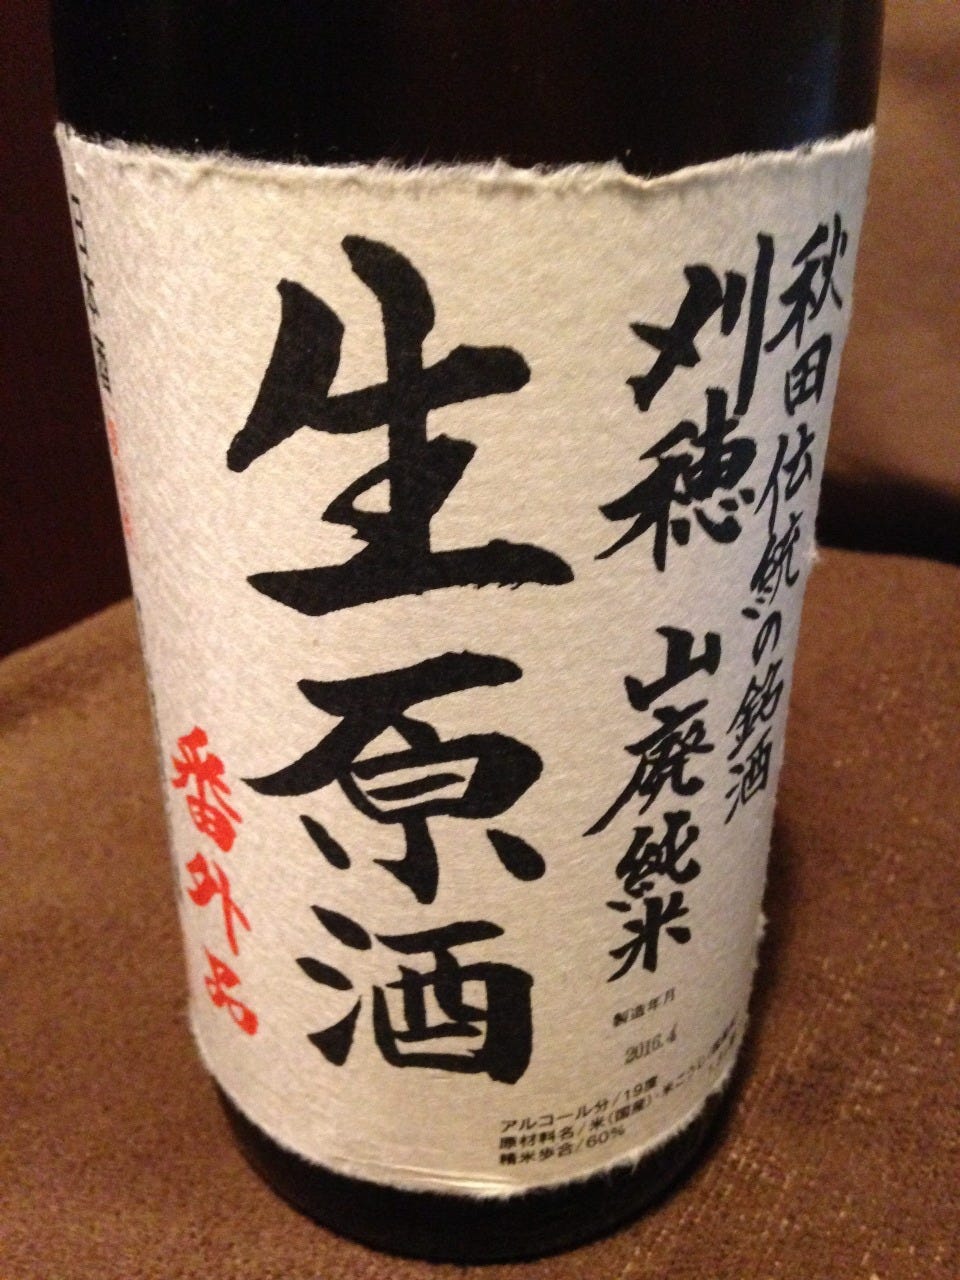 秋田伝統の銘酒
刈穂 山廃純米
生原酒
番外品
日本酒
製造年月
2016.4
アルコール分/19度
原材料名/米(国産)・米こうじ
精米歩合/60%